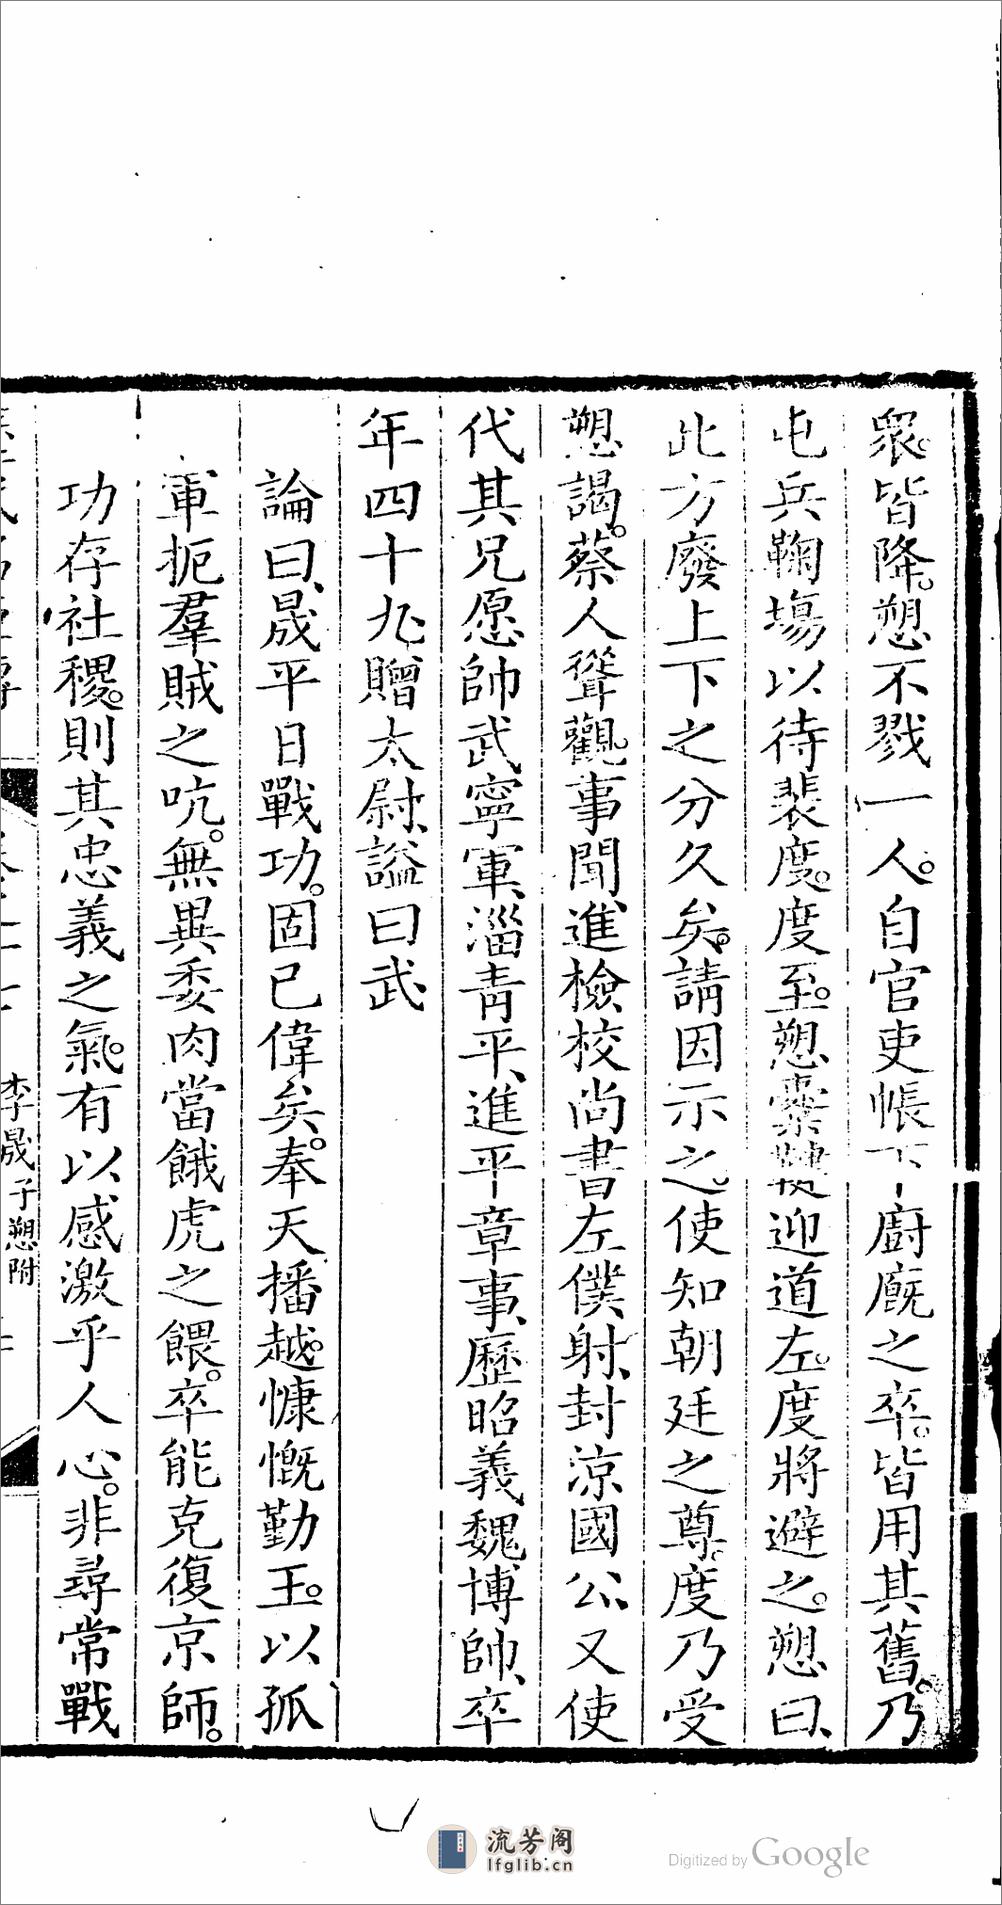 眾。皆降。愬不戮一人。自官吏帳下廚廐之卒。皆用其舊。乃
屯兵鞠塲以待裴度。度至。愬櫜鞬迎道左。度將避之。愬曰、
此方廢上下之分久矣。請因示之。使知朝廷之尊。度乃受
愬謁。蔡人聳觀。事聞、進檢校尚書左僕射、封涼國公、又使
代其兄愿帥武寧軍、淄青平、進平章事、歷昭義魏博帥、卒
年四十九、贈太尉、諡曰武
論曰、晟平日戰功。固已偉矣。奉天播越。慷慨勤王。以孤
軍扼羣賊之吭。無異委肉當餓虎之餵。卒能克復京師。
功存社稷。則其忠義之氣。有以感激乎人心。非尋常戰
李晟子愬附
流芳阁
lfglib.cn
Digitized by Google